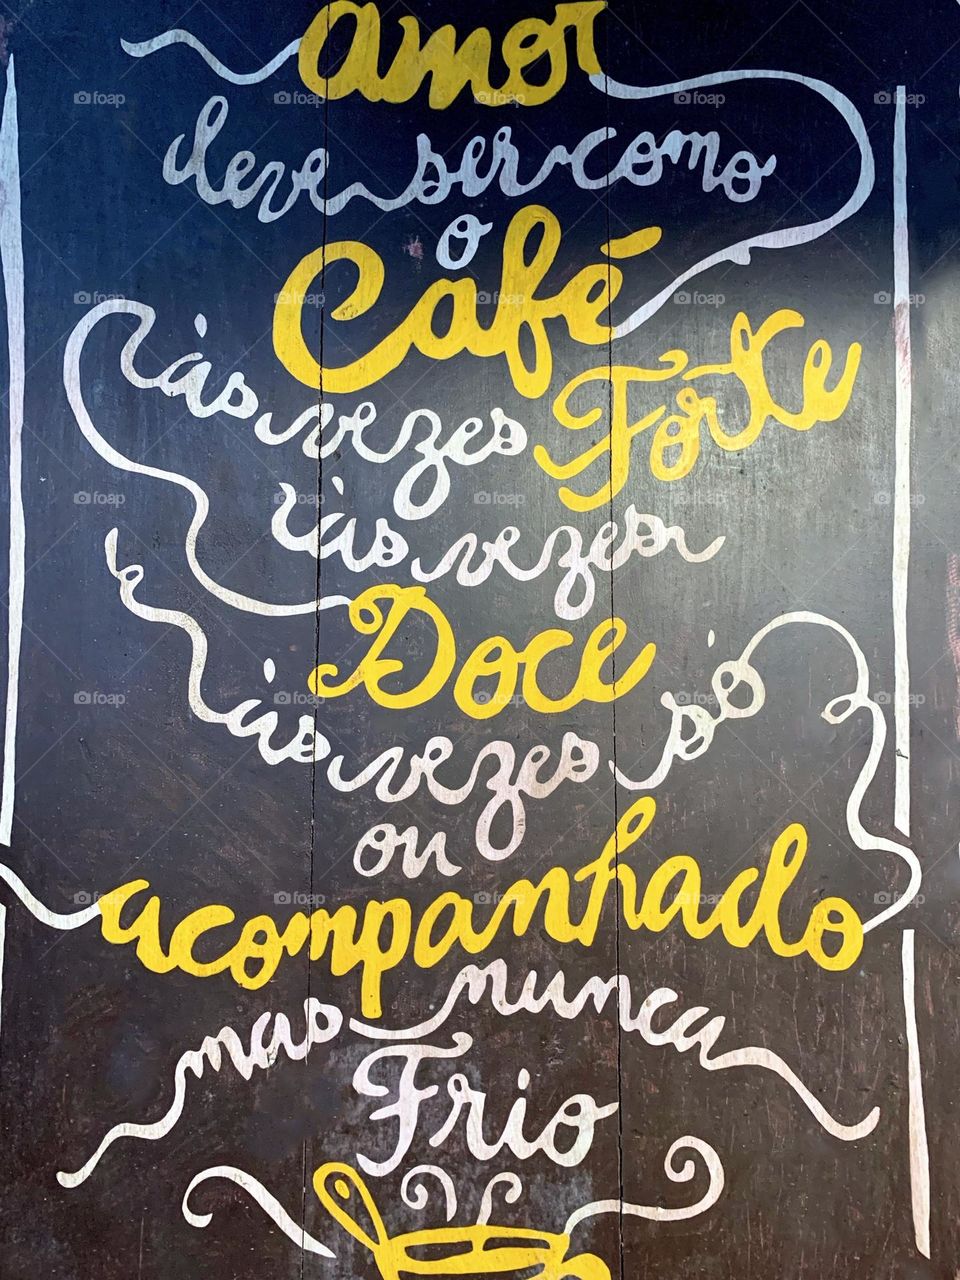 amor
deve ser como
o
Café
às vezes Forte
às vezes
Doce
às vezes só
ou
acompanhado
mas nunca
Frio